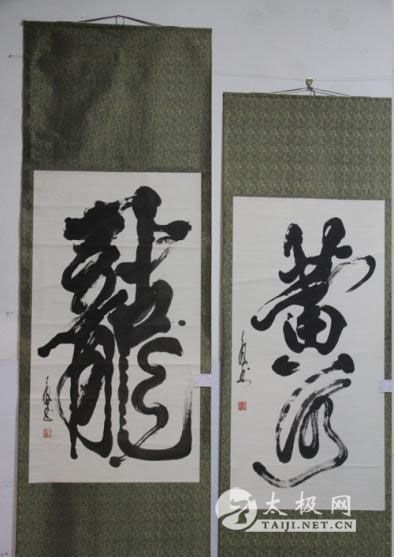 龍
黄河
太极网
TAIJI.NET.CN